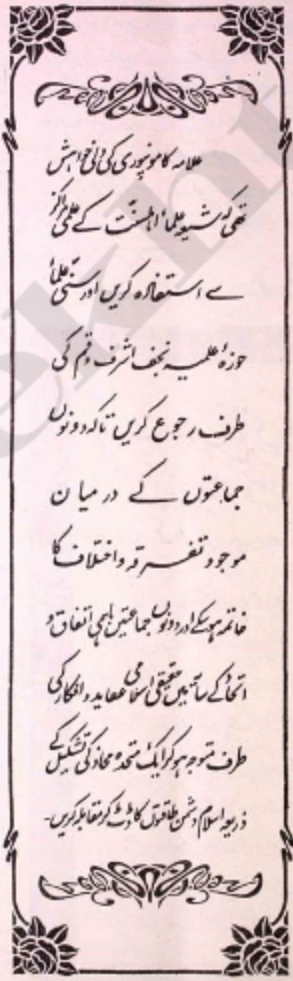 علامہ کامونپوری کی دلی خواہش
تھی کہ شیعہ علماء اہلسنت کے علمی مراکز
سے استفادہ کریں اور سنی علماء
حوزۂ علمیہ نجف اشرف و قم کی
طرف رجوع کریں تاکہ دونوں
جماعتوں کے درمیان
موجود تفرقہ و اختلاف کا
خاتمہ ہو سکے اور دونوں جماعتیں باہمی اتفاق و
اتحاد کے سائے میں حقیقی اسلامی عقاید و افکار کی
طرف متوجہ ہو کر ایک متحدہ محاذ کی تشکیل کے
ذریعہ اسلام دشمن طاقتوں کا ڈٹ کر مقابلہ کریں۔